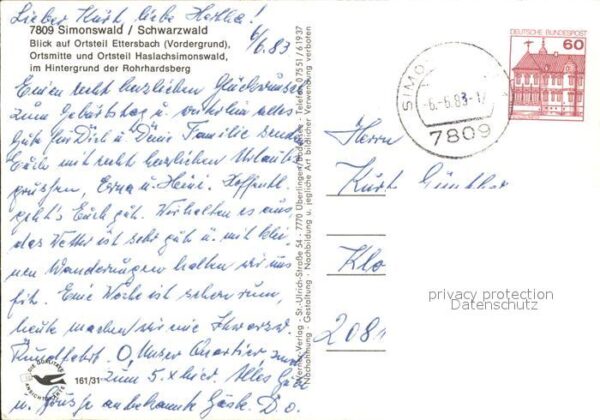 Lieber Kurt, liebe Hertha!
6/6.83
7809 Simonswald / Schwarzwald
Blick auf Ortsteil Ettersbach (Vordergrund),
Ortsmitte und Ortsteil Haslachsimonswald,
im Hintergrund der Rohrhardsberg
Einen recht herzlichen Glückwunsch
zum Geburtstag u. weiterhin alles
Gute für Dich u. Deine Familie sende
Euch mit recht herzlichen Urlaubs
grüßen, Erna u. Heini. Hoffentl.
geht's Euch gut. Wir halten es aus,
das Wetter ist sehr gut u. mit klei-
nen Wanderungen halten wir uns
fit. Eine Woche ist schon rum,
heute machen wir eine Schwarzw.
Rundfahrt. Unser Quartier
zum 5. x hier. Alles Gute
u. Grüße an bekannte Gäste. D. o.
161/31
DIE QUALITÄTS
ANSICHTSKARTE
Verlag · St.-Ulrich-Straße 54 · 7770 Überlingen/Bodensee · Telefon 07551/61937
Nachahmung · Gestaltung · Nachbildung u. jegliche Art bildlicher Verwendung verboten
DEUTSCHE BUNDESPOST
60
SIMO
-6.-6.83-1
7809
Herrn
Kurt Günther
Klo
2081
privacy protection
Datenschutz